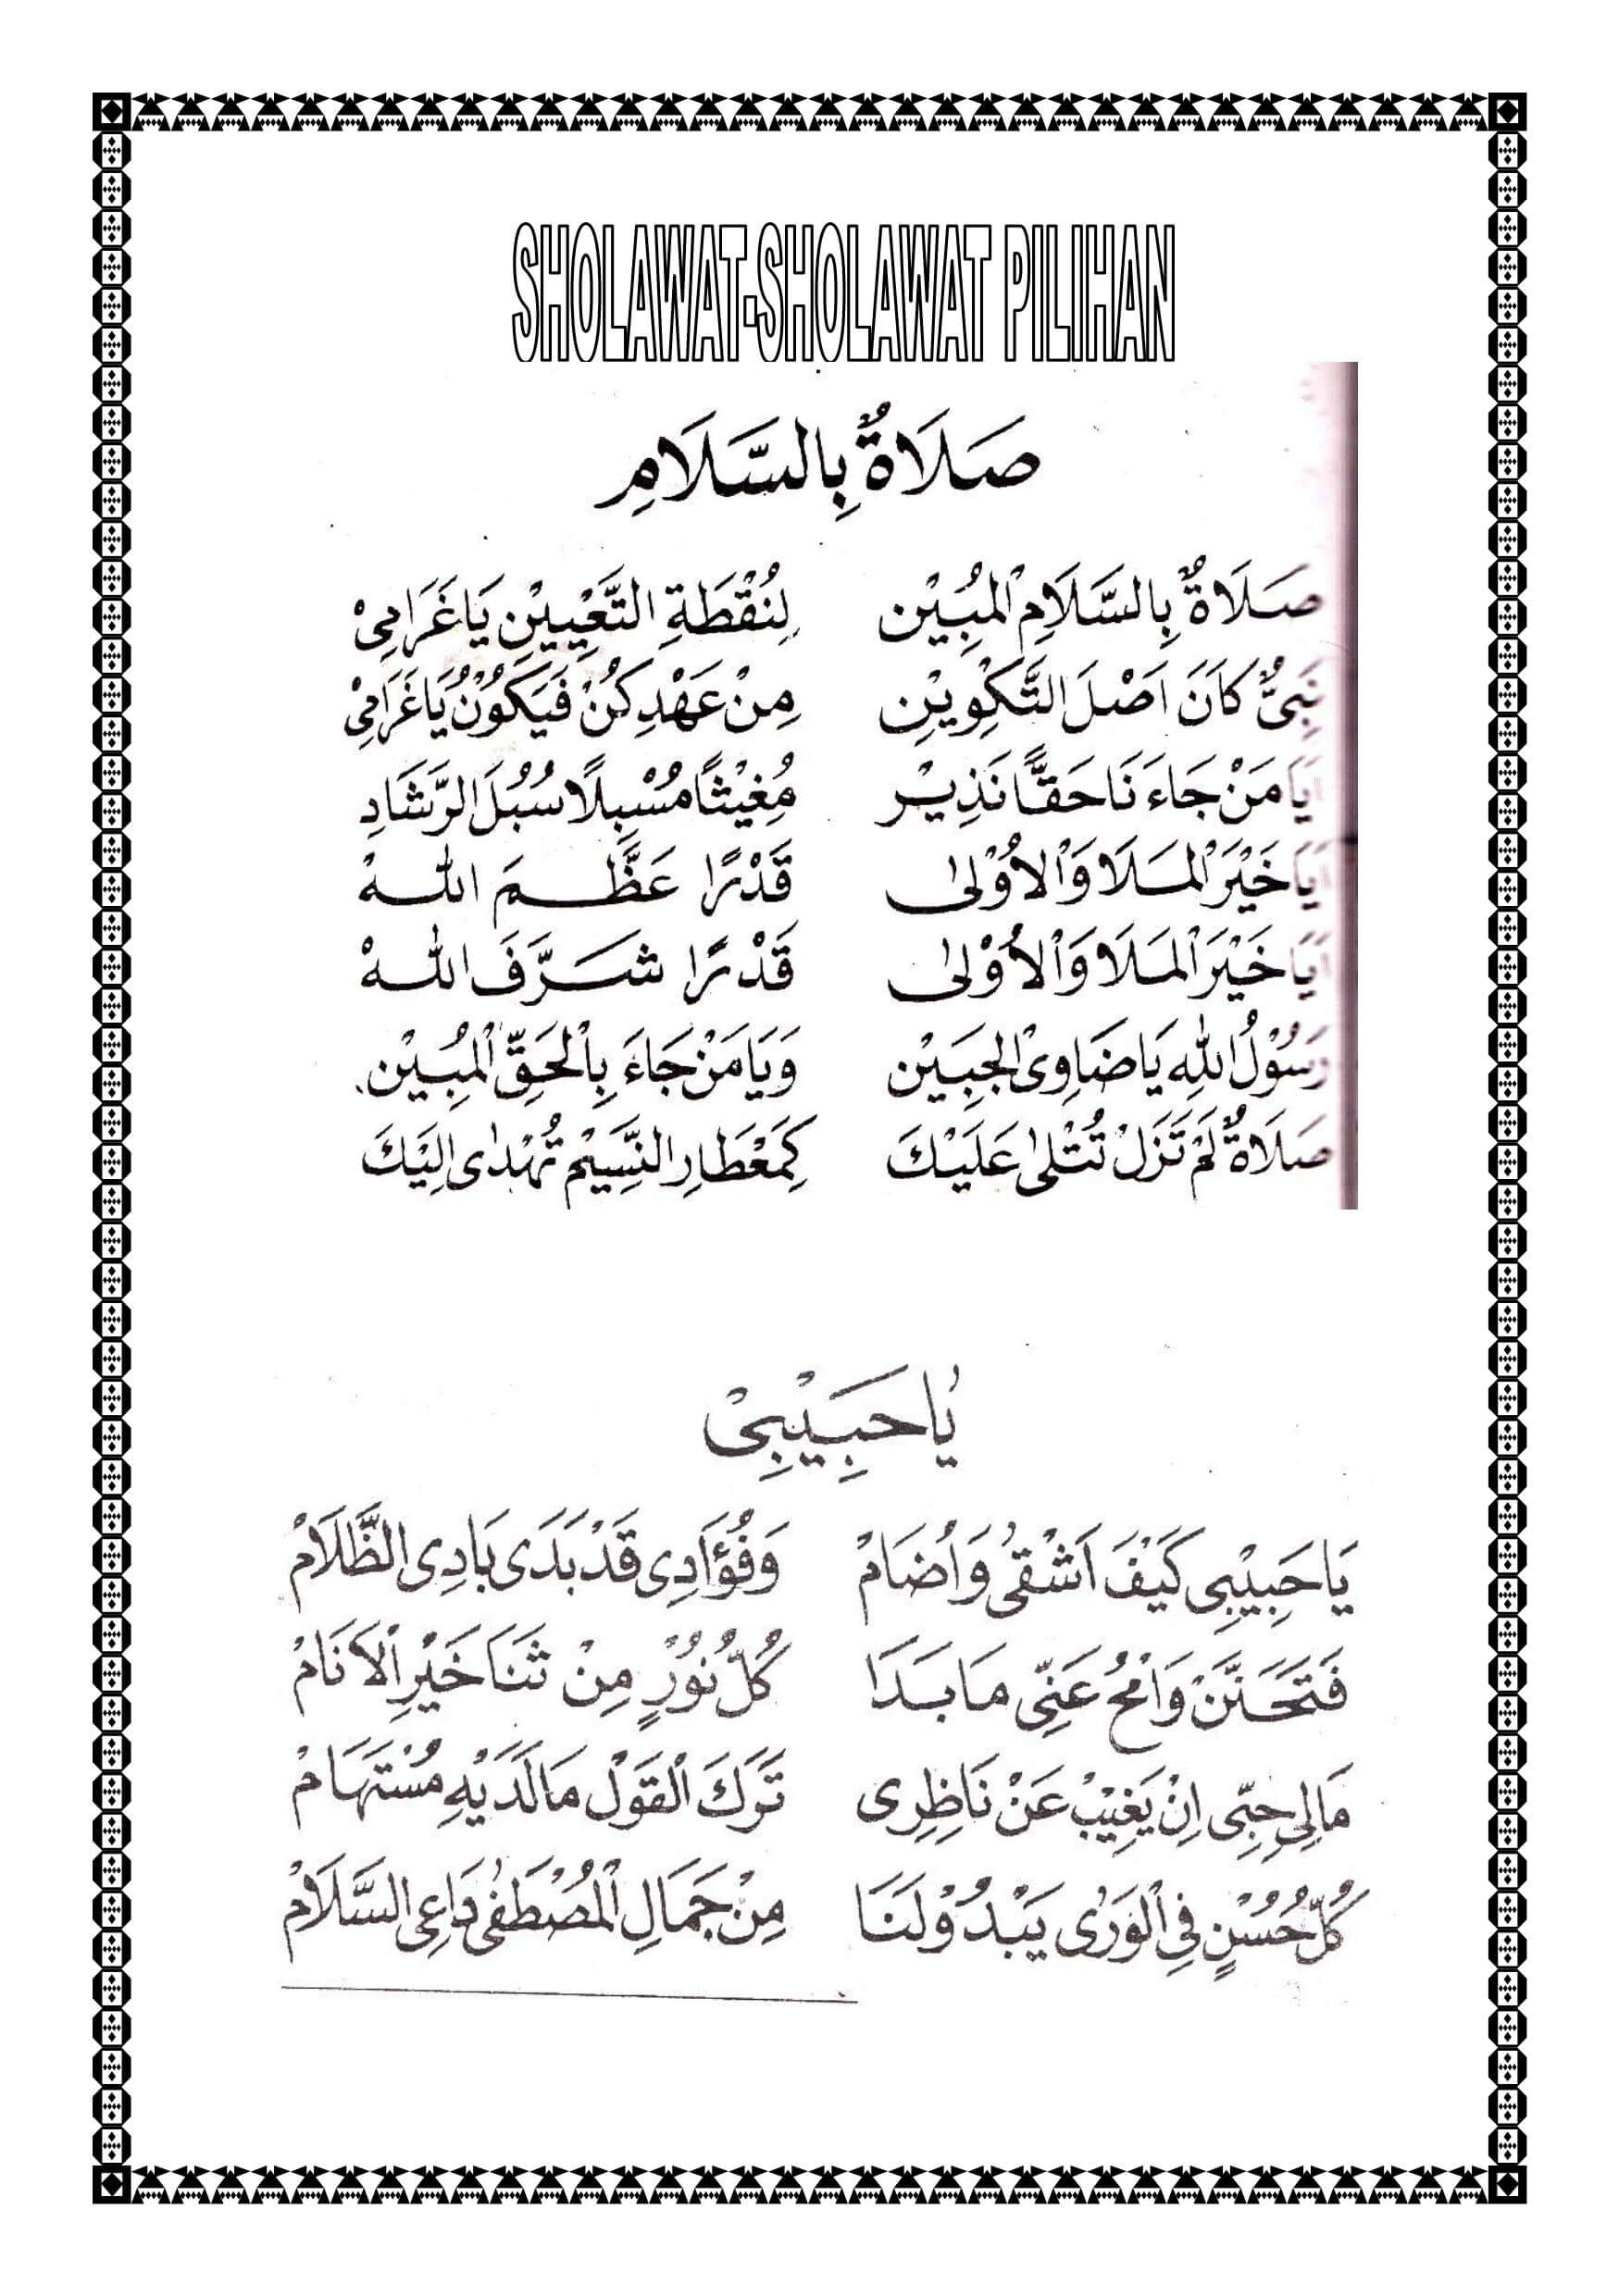 SHOLAWAT-SHOLAWAT PILIHAN
صَلَاةٌ بِالسَّلَامِ
صَلَاةٌ بِالسَّلَامِ الْمُبِيْن لِنُقْطَةِ التَّعْيِيْنِ يَا غَرَامِيْ
نَبِيٌّ كَانَ اَصْلَ التَّكْوِيْنِ مِنْ عَهْدِ كُنْ فَيَكُوْنُ يَا غَرَامِيْ
يَا مَنْ جَاءَنَا حَقًّا نَذِيْر مُغِيْثًا مُسْبِلًا سُبُلَ الرَّشَادِ
اَيَا خَيْرَ الْمَلَا وَالْاُوْلىٰ قَدْرًا عَظَّمَ اللهْ
اَيَا خَيْرَ الْمَلَا وَالْاُوْلىٰ قَدْرًا شَرَّفَ اللهْ
رَسُوْلُ اللهِ يَا ضَاوِى الْجَبِيْن وَيَا مَنْ جَاءَ بِالْحَقِّ الْمُبِيْن
صَلَاةٌ لَمْ تَزَلْ تُتْلىٰ عَلَيْكَ كَمِعْطَارِ النَّسِيْمِ تُهْدٰى اِلَيْكَ
يٰا حَبِيْبِيْ
يَا حَبِيْبِى كَيْفَ اَشْقىٰ وَاُضَامْ وَفُؤَادِى قَدْ بَدَى بَادِى الظَّلَامْ
فَتَحَنَّنْ وَامْحُ عَنِّى مَا بَدَا كُلُّ نُوْرٍ مِنْ ثَنَا خَيْرِ الْاَنَامْ
مَالِى حِبِّى اِنْ يَغِيْبْ عَنْ نَاظِرِى تَرَكَ الْقَوْلْ مَا لَدَيْهِ مُسْتَهَامْ
كُلُّ حُسْنٍ فِى الْوَرٰى يَبْدُوْ لَنَا مِنْ جَمَالِ الْمُصْطَفىٰ دَاعِى السَّلَامْ